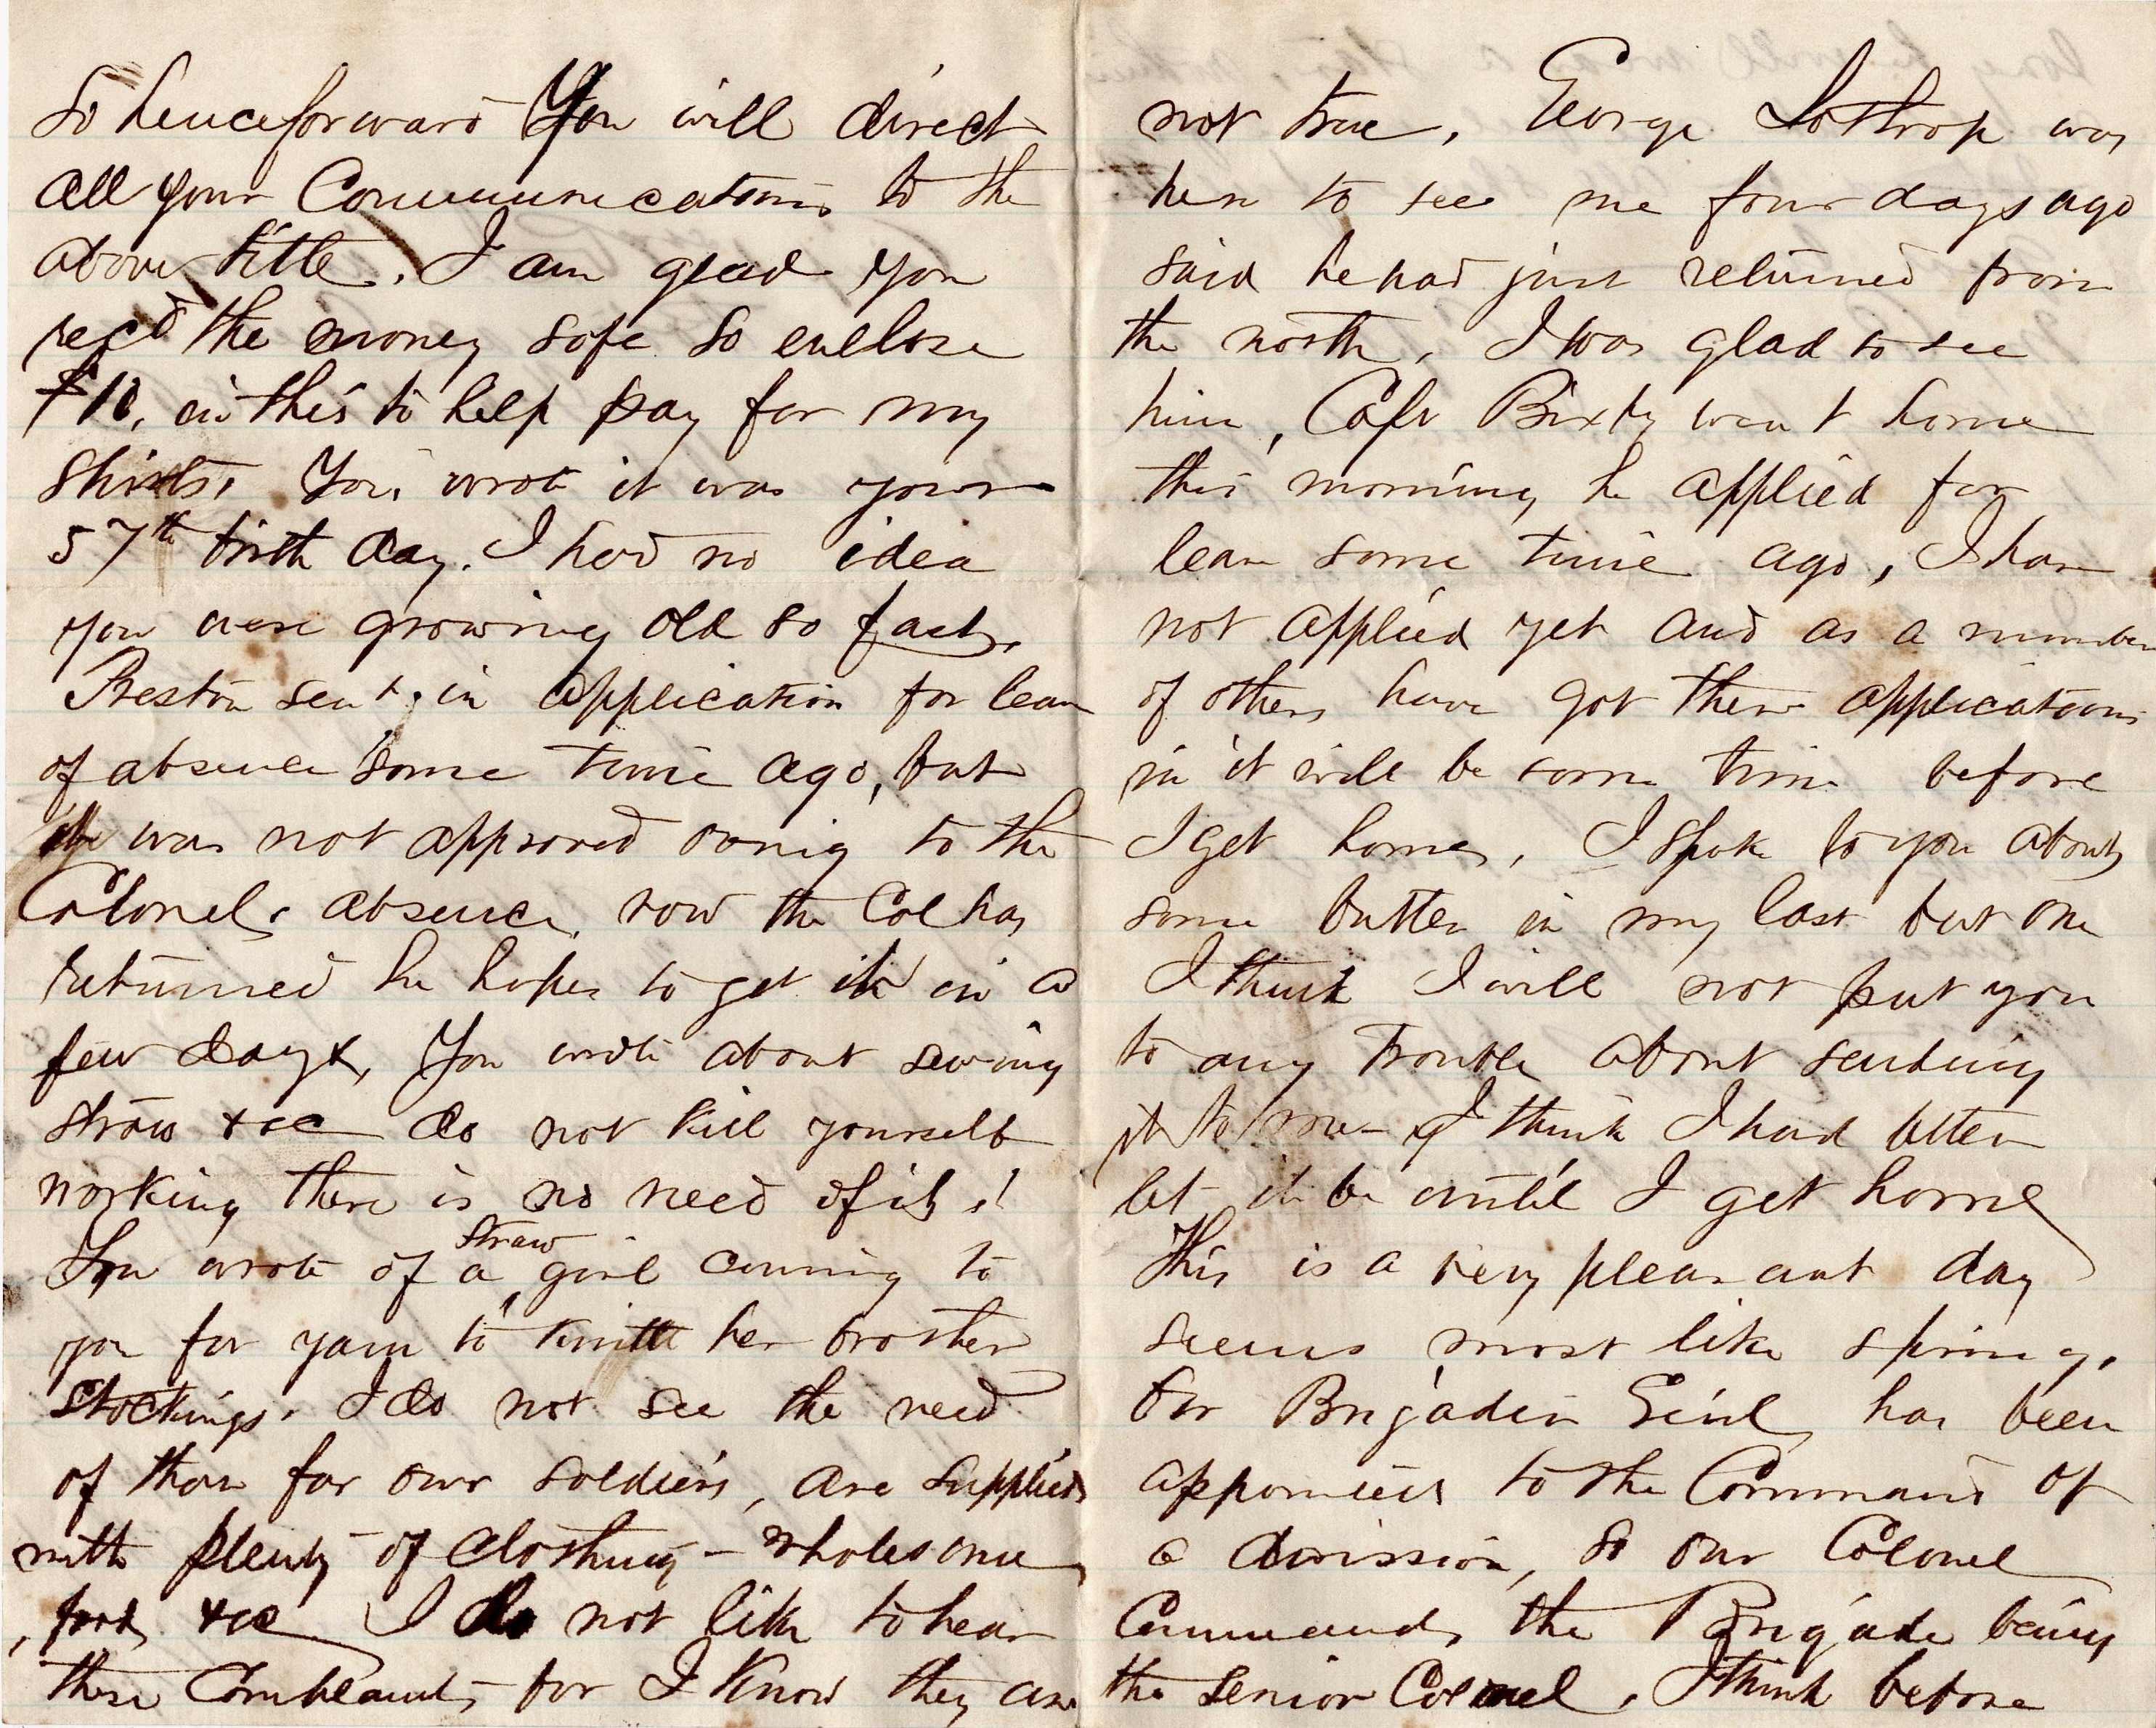 So henceforward You will direct
all your Communications to the
above title. I am glad you
recd the money safe so enclose
$10, in this to help pay for my
shirts. You wrote it was your
57th birth day. I had no idea
you were growing old so fast.
Preston sent in application for leave
of absence some time ago, but
it was not approved owing to the
Colonels absence, now the Col has
returned he hopes to get it in a
few days, You wrote about sewing
straw &cc do not kill yourself
working there is no need of it!
You wrote of a straw girl coming to
you for yarn to knitt her brother
stockings. I do not see the need
of than for our soldiers, are supplied
with plenty of clothing - wholesome
food, &cc I do not like to hear
these Complaints for I know they are
not true, George Lothrop was
here to see me four days ago
said he had just returned from
the north, I was glad to see
him, Capt Bixby went home
this morning he applied for
leave some time ago, I have
not applied yet and as a number
of others have got there applications
in it will be some time before
I get home, I spoke to you about
some butter in my last but one
I think I will not put you
to any trouble about sending
it to me I think I had better
let it be until I get home
This is a very pleasant day
seems most like spring,
Our Brigadier Genl, has been
appointed to the Command of
a division, so our Colonel
Commands the Brigade being
the senior Colonel, I think before